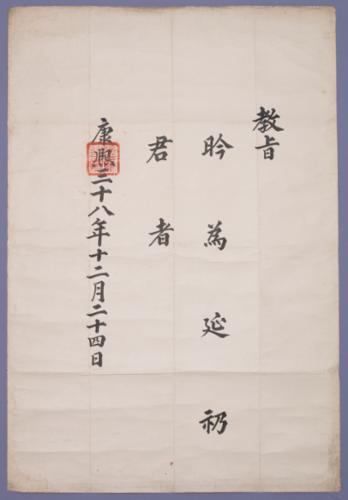 教旨
昑為延礽
君者
康熙三十八年十二月二十四日